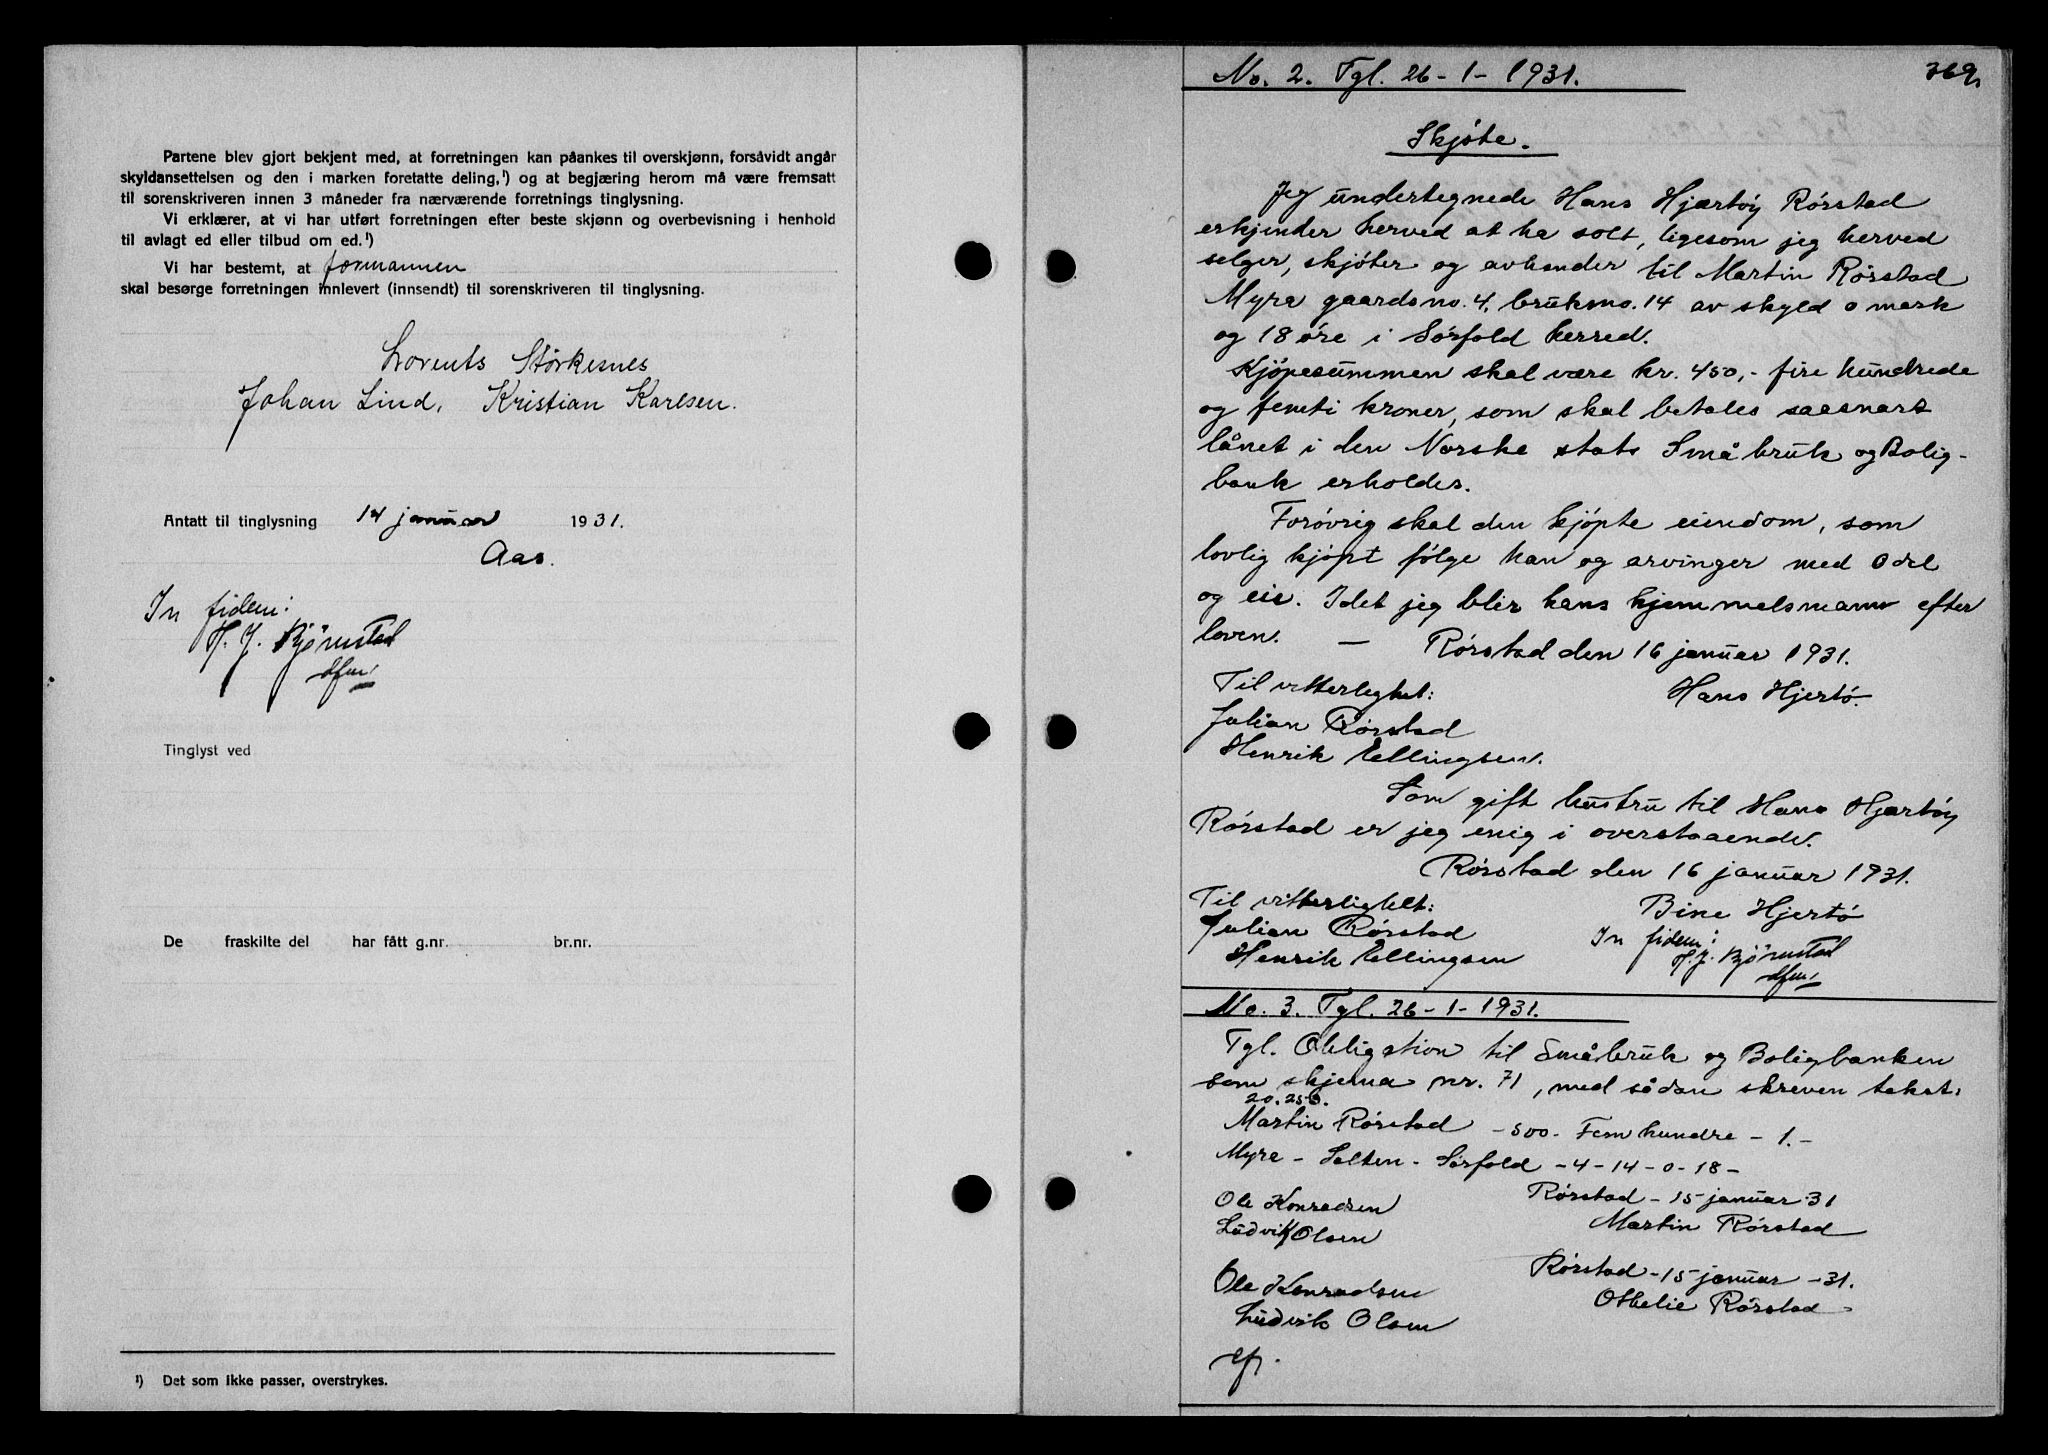 Partene blev gjort bekjent med, at forretningen kan påankes til overskjønn, forsåvidt angår
skyldansettelsen og den i marken foretatte deling,¹) og at begjæring herom må være fremsatt
til sorenskriveren innen 3 måneder fra nærværende forretnings tinglysning.
Vi erklærer, at vi har utført forretningen efter beste skjønn og overbevisning i henhold
til avlagt ed eller tilbud om ed.¹)
Vi har bestemt, at formannen
skal besørge forretningen innlevert (innsendt) til sorenskriveren til tinglysning.
Lorents Størkesnes
Johan Lind, Kristian Karlsen.
Antatt til tinglysning 14 januar 1931.
Aas.
In fidem:
H. J. Bjørnstad
Tinglyst ved
De fraskilte del har fått g.nr. br.nr.
¹) Det som ikke passer, overstrykes.
369.
No. 2. Tgl. 26-1-1931.
Skjøte.
Jeg undertegnede Hans Hjærtøy Rørstad
erkjender herved at ha solt, ligesom jeg herved
selger, skjøter og avhender til Martin Rørstad
Myra gaardsno. 4, bruksno. 14 av skyld 0 mark
og 18 øre i Sørfold herred.
Kjøpesummen skal være kr. 450,- fire hundrede
og femti kroner, som skal betales saasnart
lånet i den Norske stats Småbruk og Bolig-
bank erholdes.
Forøvrig skal den kjøpte eiendom, som
lovlig kjøpt følge han og arvinger med Odel
og eie. Idet jeg blir hans hjemmelsmann efter
loven. — Rørstad den 16 januar 1931.
Til vitterlighet: Hans Hjertø.
Julian Rørstad
Henrik Ellingsen.
Som gift hustru til Hans Hjærtøy
Rørstad er jeg enig i overstaaende.
Rørstad den 16 januar 1931.
Til vitterlighet: Bine Hjertø
Julian Rørstad In fidem:
Henrik Ellingsen H. J. Bjørnstad
No. 3. Tgl. 26-1-1931.
Tgl. Obligation til Småbruk og Boligbanken
som skjema nr. 71, med sådan skreven tekst:
20.250.
Martin Rørstad - 500.- Fem hundre - 1.-
Myra - Salten - Sørfold - 4 - 14 - 0 - 18 -
Rørstad - 15 januar 31
Ole Konradsen Martin Rørstad
Ludvik Olsen
Rørstad - 15 januar - 31.
Ole Konradsen Othelie Rørstad
Ludvik Olsen